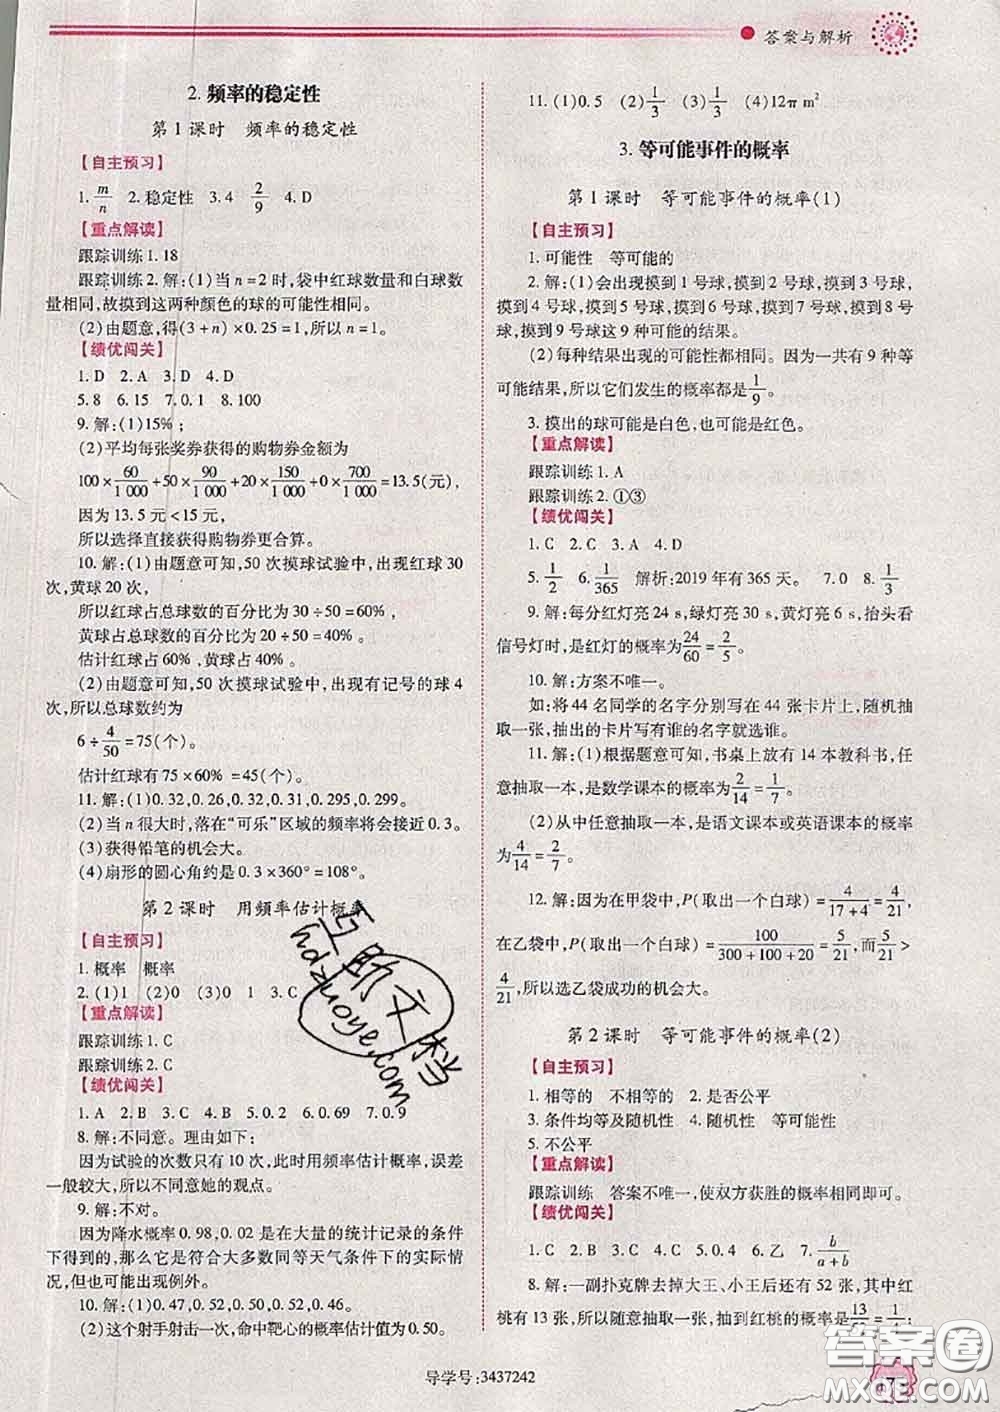 答案与解析
2. 频率的稳定性
第1课时 频率的稳定性
【自主预习】
1. m/n 2. 稳定性 3. 4 2/9 4. D
【重点解读】
跟踪训练1. 18
跟踪训练2. 解:(1)当n=2时,袋中红球数量和白球数
量相同,故摸到这两种颜色的球的可能性相同。
(2)由题意,得(3+n)×0.25=1,所以n=1。
【绩优闯关】
1. D 2. A 3. D 4. D
5. 8 6. 15 7. 0.1 8. 100
9. 解:(1)15%;
(2)平均每张奖券获得的购物券金额为
100×60/1 000+50×90/1 000+20×150/1 000+0×700/1 000=13.5(元),
因为13.5元<15元,
所以选择直接获得购物券更合算。
10. 解:(1)由题意可知,50次摸球试验中,出现红球30
次,黄球20次,
所以红球占总球数的百分比为30÷50=60%,
黄球占总球数的百分比为20÷50=40%。
估计红球占60%,黄球占40%。
(2)由题意可知,50次摸球试验中,出现有记号的球4
次,所以总球数约为
6÷4/50=75(个)。
估计红球有75×60%=45(个)。
11. 解:(1)0.32,0.26,0.32,0.31,0.295,0.299。
(2)当n很大时,落在“可乐”区域的频率将会接近0.3。
(3)获得铅笔的机会大。
(4)扇形的圆心角约是0.3×360°=108°。
第2课时 用频率估计概率
【自主预习】
1. 概率 概率
2. (1)1 (2)0 (3)0 1 3. C
【重点解读】
跟踪训练1. C
跟踪训练2. C
【绩优闯关】
1. A 2. B 3. C 4. B 5. 0.2 6. 0.69 7. 0.9
8. 解:不同意。理由如下:
因为试验的次数只有10次,此时用频率估计概率,误差
一般较大,所以不同意她的观点。
9. 解:不对。
因为降水概率0.98,0.02是在大量的统计记录的条件
下得到的,那么它是符合大多数同等天气条件下的实际情
况,但也可能出现例外。
10. 解:(1)0.47,0.52,0.50,0.52,0.46。
(2)这个射手射击一次,命中靶心的概率估计值为0.50。
11. (1)0.5 (2)1/3 (3)1/3 (4)12π m²
3. 等可能事件的概率
第1课时 等可能事件的概率(1)
【自主预习】
1. 可能性 等可能的
2. 解:(1)会出现摸到1号球,摸到2号球,摸到3号球,
摸到4号球,摸到5号球,摸到6号球,摸到7号球,摸到8号
球,摸到9号球这9种可能的结果。
(2)每种结果出现的可能性都相同。因为一共有9种等
可能结果,所以它们发生的概率都是1/9。
3. 摸出的球可能是白色,也可能是红色。
【重点解读】
跟踪训练1. A
跟踪训练2. ①③
【绩优闯关】
1. C 2. C 3. A 4. D
5. 1/2 6. 1/365 解析:2019年有365天。 7. 0 8. 1/3
9. 解:每分红灯亮24 s,绿灯亮30 s,黄灯亮6 s,抬头看
信号灯时,是红灯的概率为24/60=2/5。
10. 解:方案不唯一。
如:将44名同学的名字分别写在44张卡片上,随机抽
取一张,抽出的卡片写有谁的名字就选谁。
11. 解:(1)根据题意可知,书桌上放有14本教科书,任
意抽取一本,是数学课本的概率为2/14=1/7。
(2)从中任意抽取一本,是语文课本或英语课本的概率
为4/14=2/7。
12. 解:在甲袋中,P(取出一个白球)=4/(17+4)=4/21,
在乙袋中,P(取出一个白球)=100/(300+100+20)=5/21,而5/21>
4/21,所以选乙袋成功的机会大。
第2课时 等可能事件的概率(2)
【自主预习】
1. 相等的 不相等的 2. 是否公平
3. 条件均等及随机性 4. 随机性 等可能性
5. 不公平
【重点解读】
跟踪训练 答案不唯一,使双方获胜的概率相同即可。
【绩优闯关】
1. C 2. B 3. C 4. A 5. A 6. 乙 7. b/(a+b)
8. 解:一副扑克牌去掉大王、小王后还有52张,其中红
桃有13张,所以随意抽取一张,抽到红桃的概率为13/52=1/4;
导学号:3437242
互助文档
hdzuoye.com
答案圈
MXQE.COM